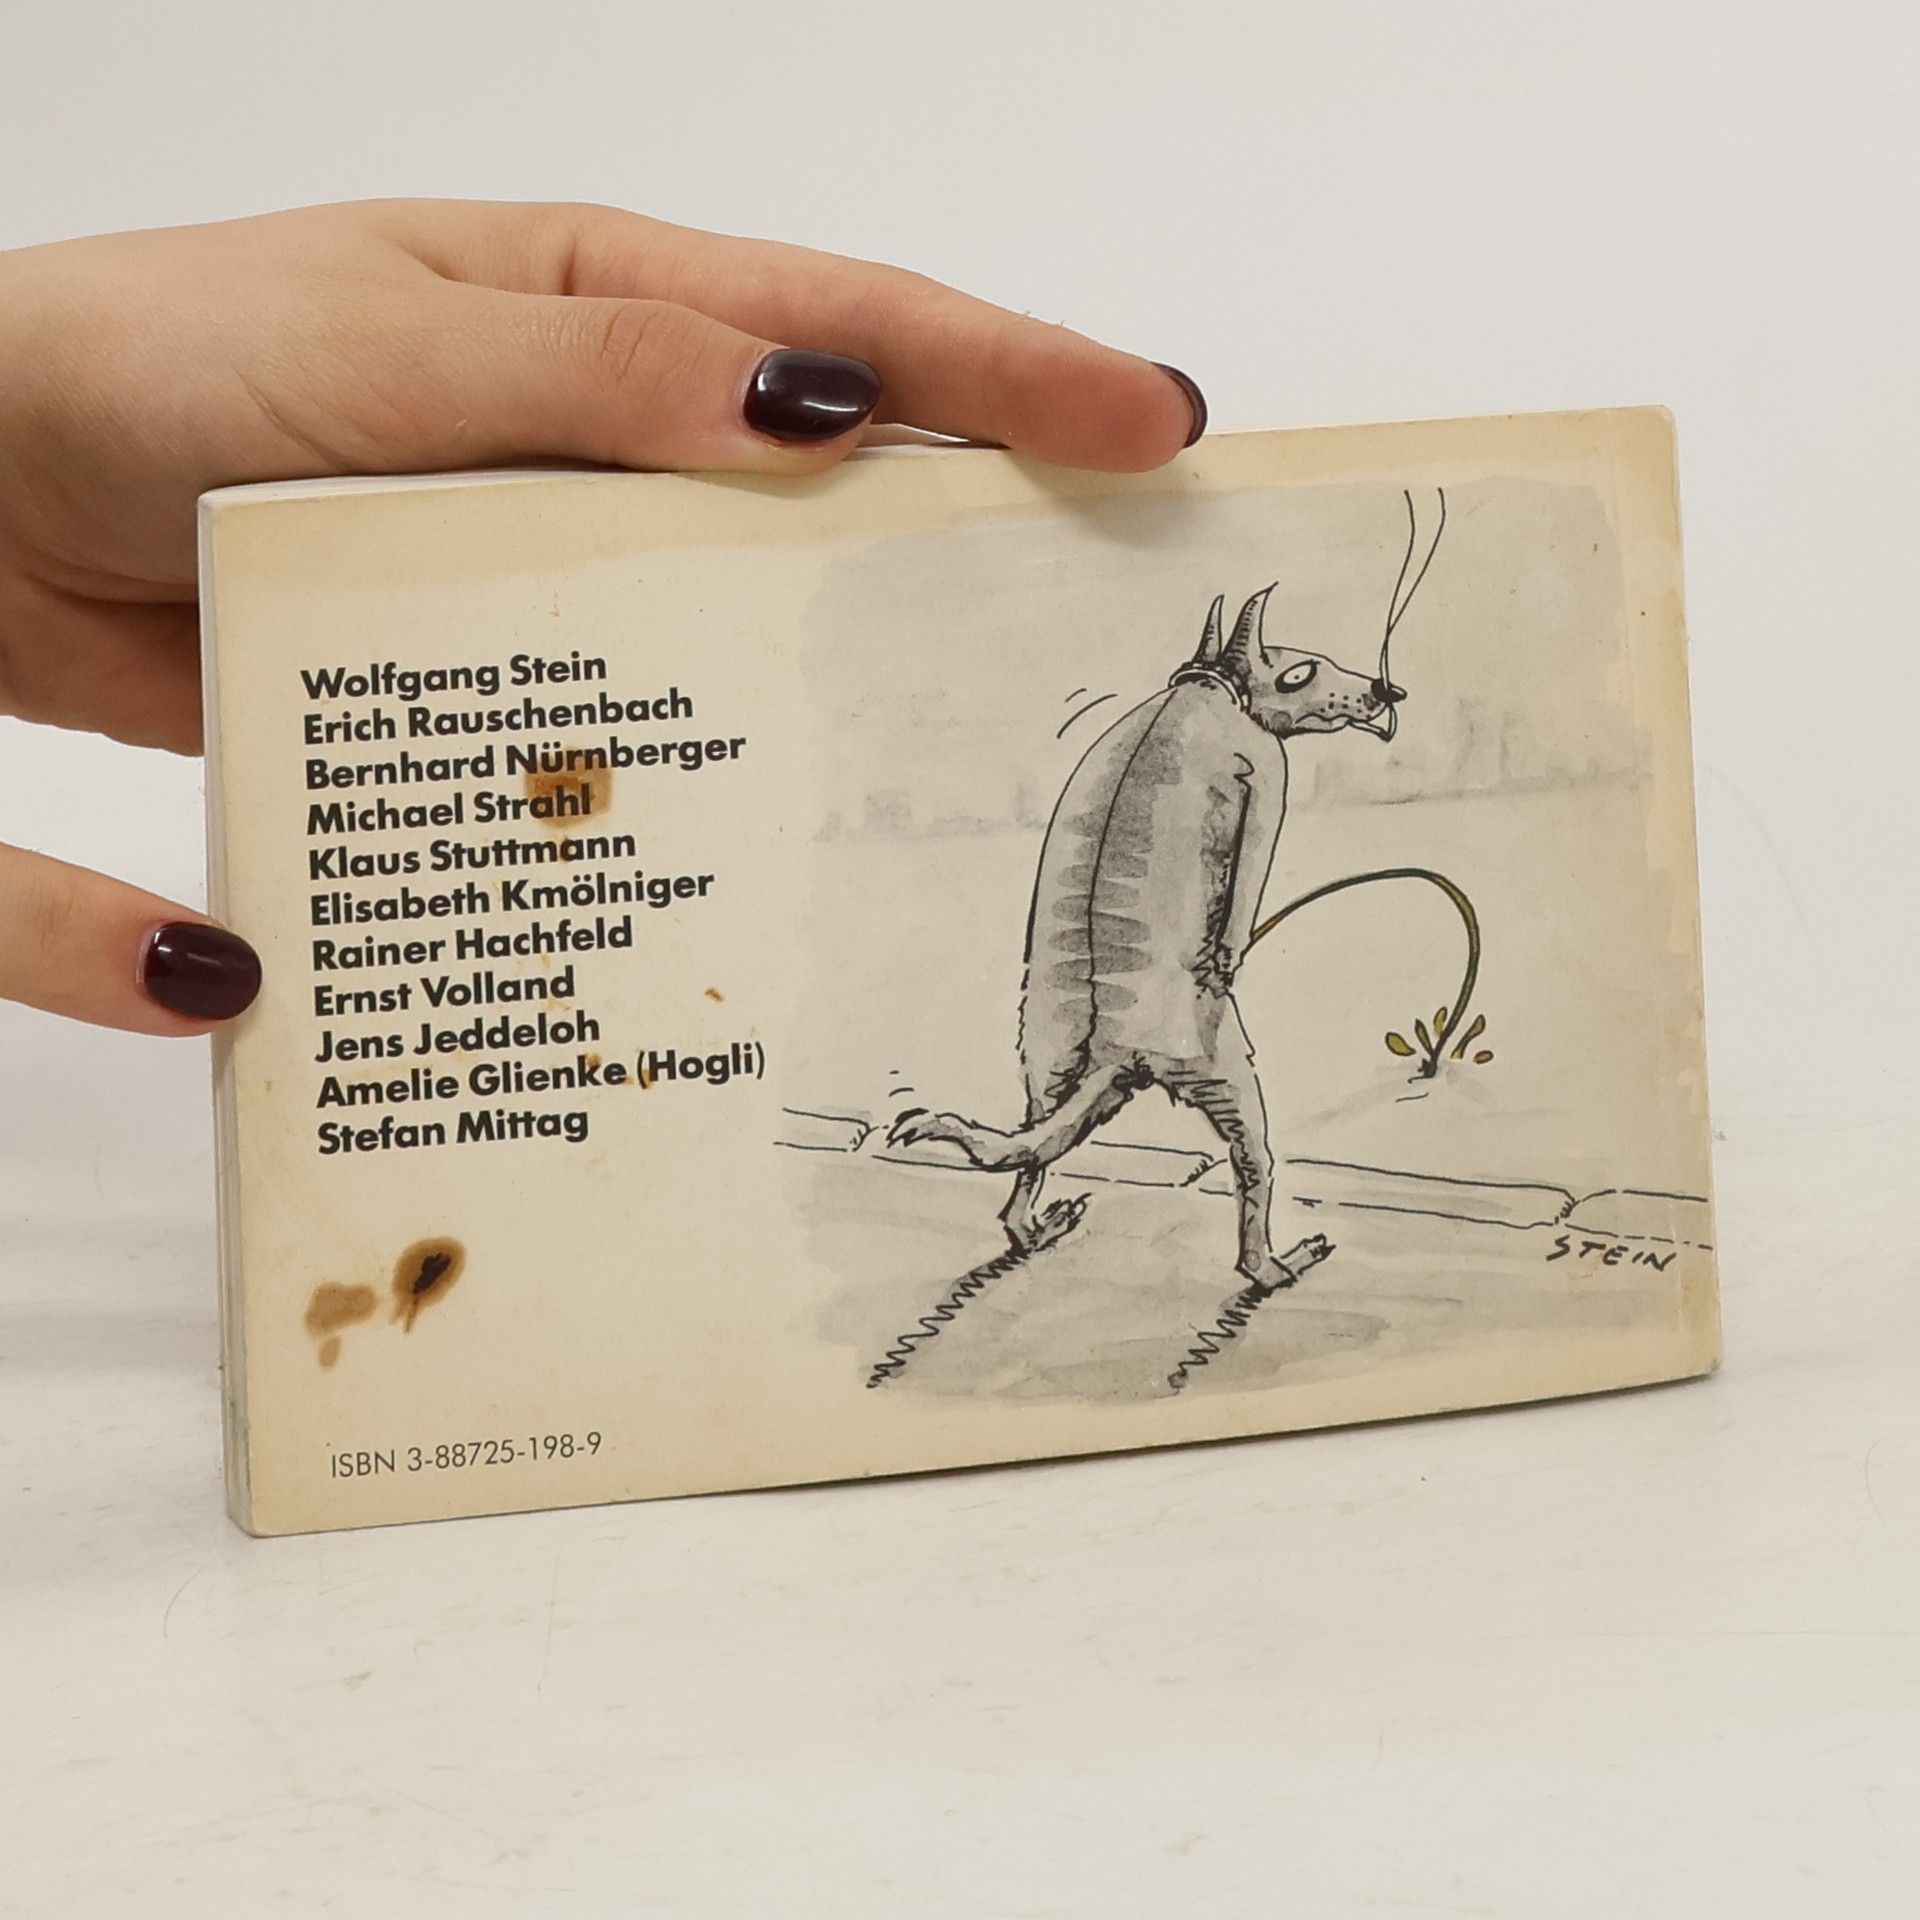 Wolfgang Stein
Erich Rauschenbach
Bernhard Nürnberger
Michael Strahl
Klaus Stuttmann
Elisabeth Kmölniger
Rainer Hachfeld
Ernst Volland
Jens Jeddeloh
Amelie Glienke (Hogli)
Stefan Mittag
STEIN
ISBN 3-88725-198-9